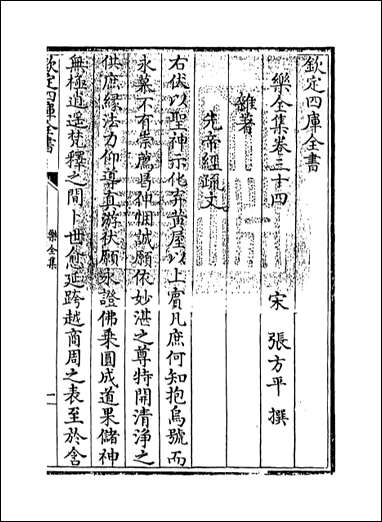 欽定四庫全書
樂全集卷三十四
宋 張方平 撰
雜著
先帝經疏文
右伏以聖神示化弃黄屋以上賓凡庶何知抱烏號而
永慕不有崇薦曷伸悃誠願依妙湛之尊特開清淨之
供庶緣法力仰導真游伏願永證佛乘圓成道果儲神
無極逍遥梵釋之間卜世愈延跨越商周之表至於含
欽定四庫全書
樂全集
一